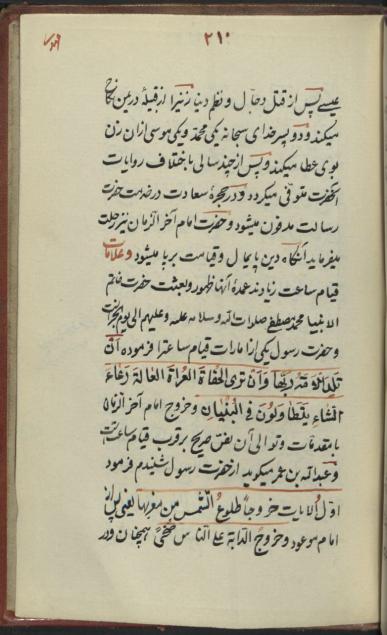 ۲۱۰
عیسی پس از قتل دجال و نظم دنیا زنیرا از قبیلهٔ در یمن نکاح
میکند و دو پسر خدای سبحانه یکی محمد و یکی موسی از ان زن
بوی عطا میکند و پس از چند سالی باختلاف روایات
آنحضرت متوفی میگردد و در حجرهٔ سعادت در خدمت حضرت
رسالت مدفون میشود و حضرت امام آخر الزمان نیز رحلت
میفرماید آنگاه دین پایمال و قیامت برپا میشود و علامات
قیام ساعت زیادند عمدهٔ آنها ظهور و بعثت حضرت خاتم
الانبیا محمد مصطفی صلوات الله و سلامه علیه و علیهم الی یوم
و حضرت رسول یکی از امارات قیام ساعترا فرموده ان
تلد الامة ربتها و ان تری الحفاة العراة العالة رعاء
الشاء یتطاولون فی البنیان و خروج امام آخر الزمان
با مقدمات و توالی آن نص صریح بر قرب قیام ساعتست
و عبدالله بن عمر میگوید از حضرت رسول شنیدم فرمود
اول الایات خروجا طلوع الشمس من مغربها یعنی پس از
امام موعود و خروج الدابة علی الناس ضحی همچنان در